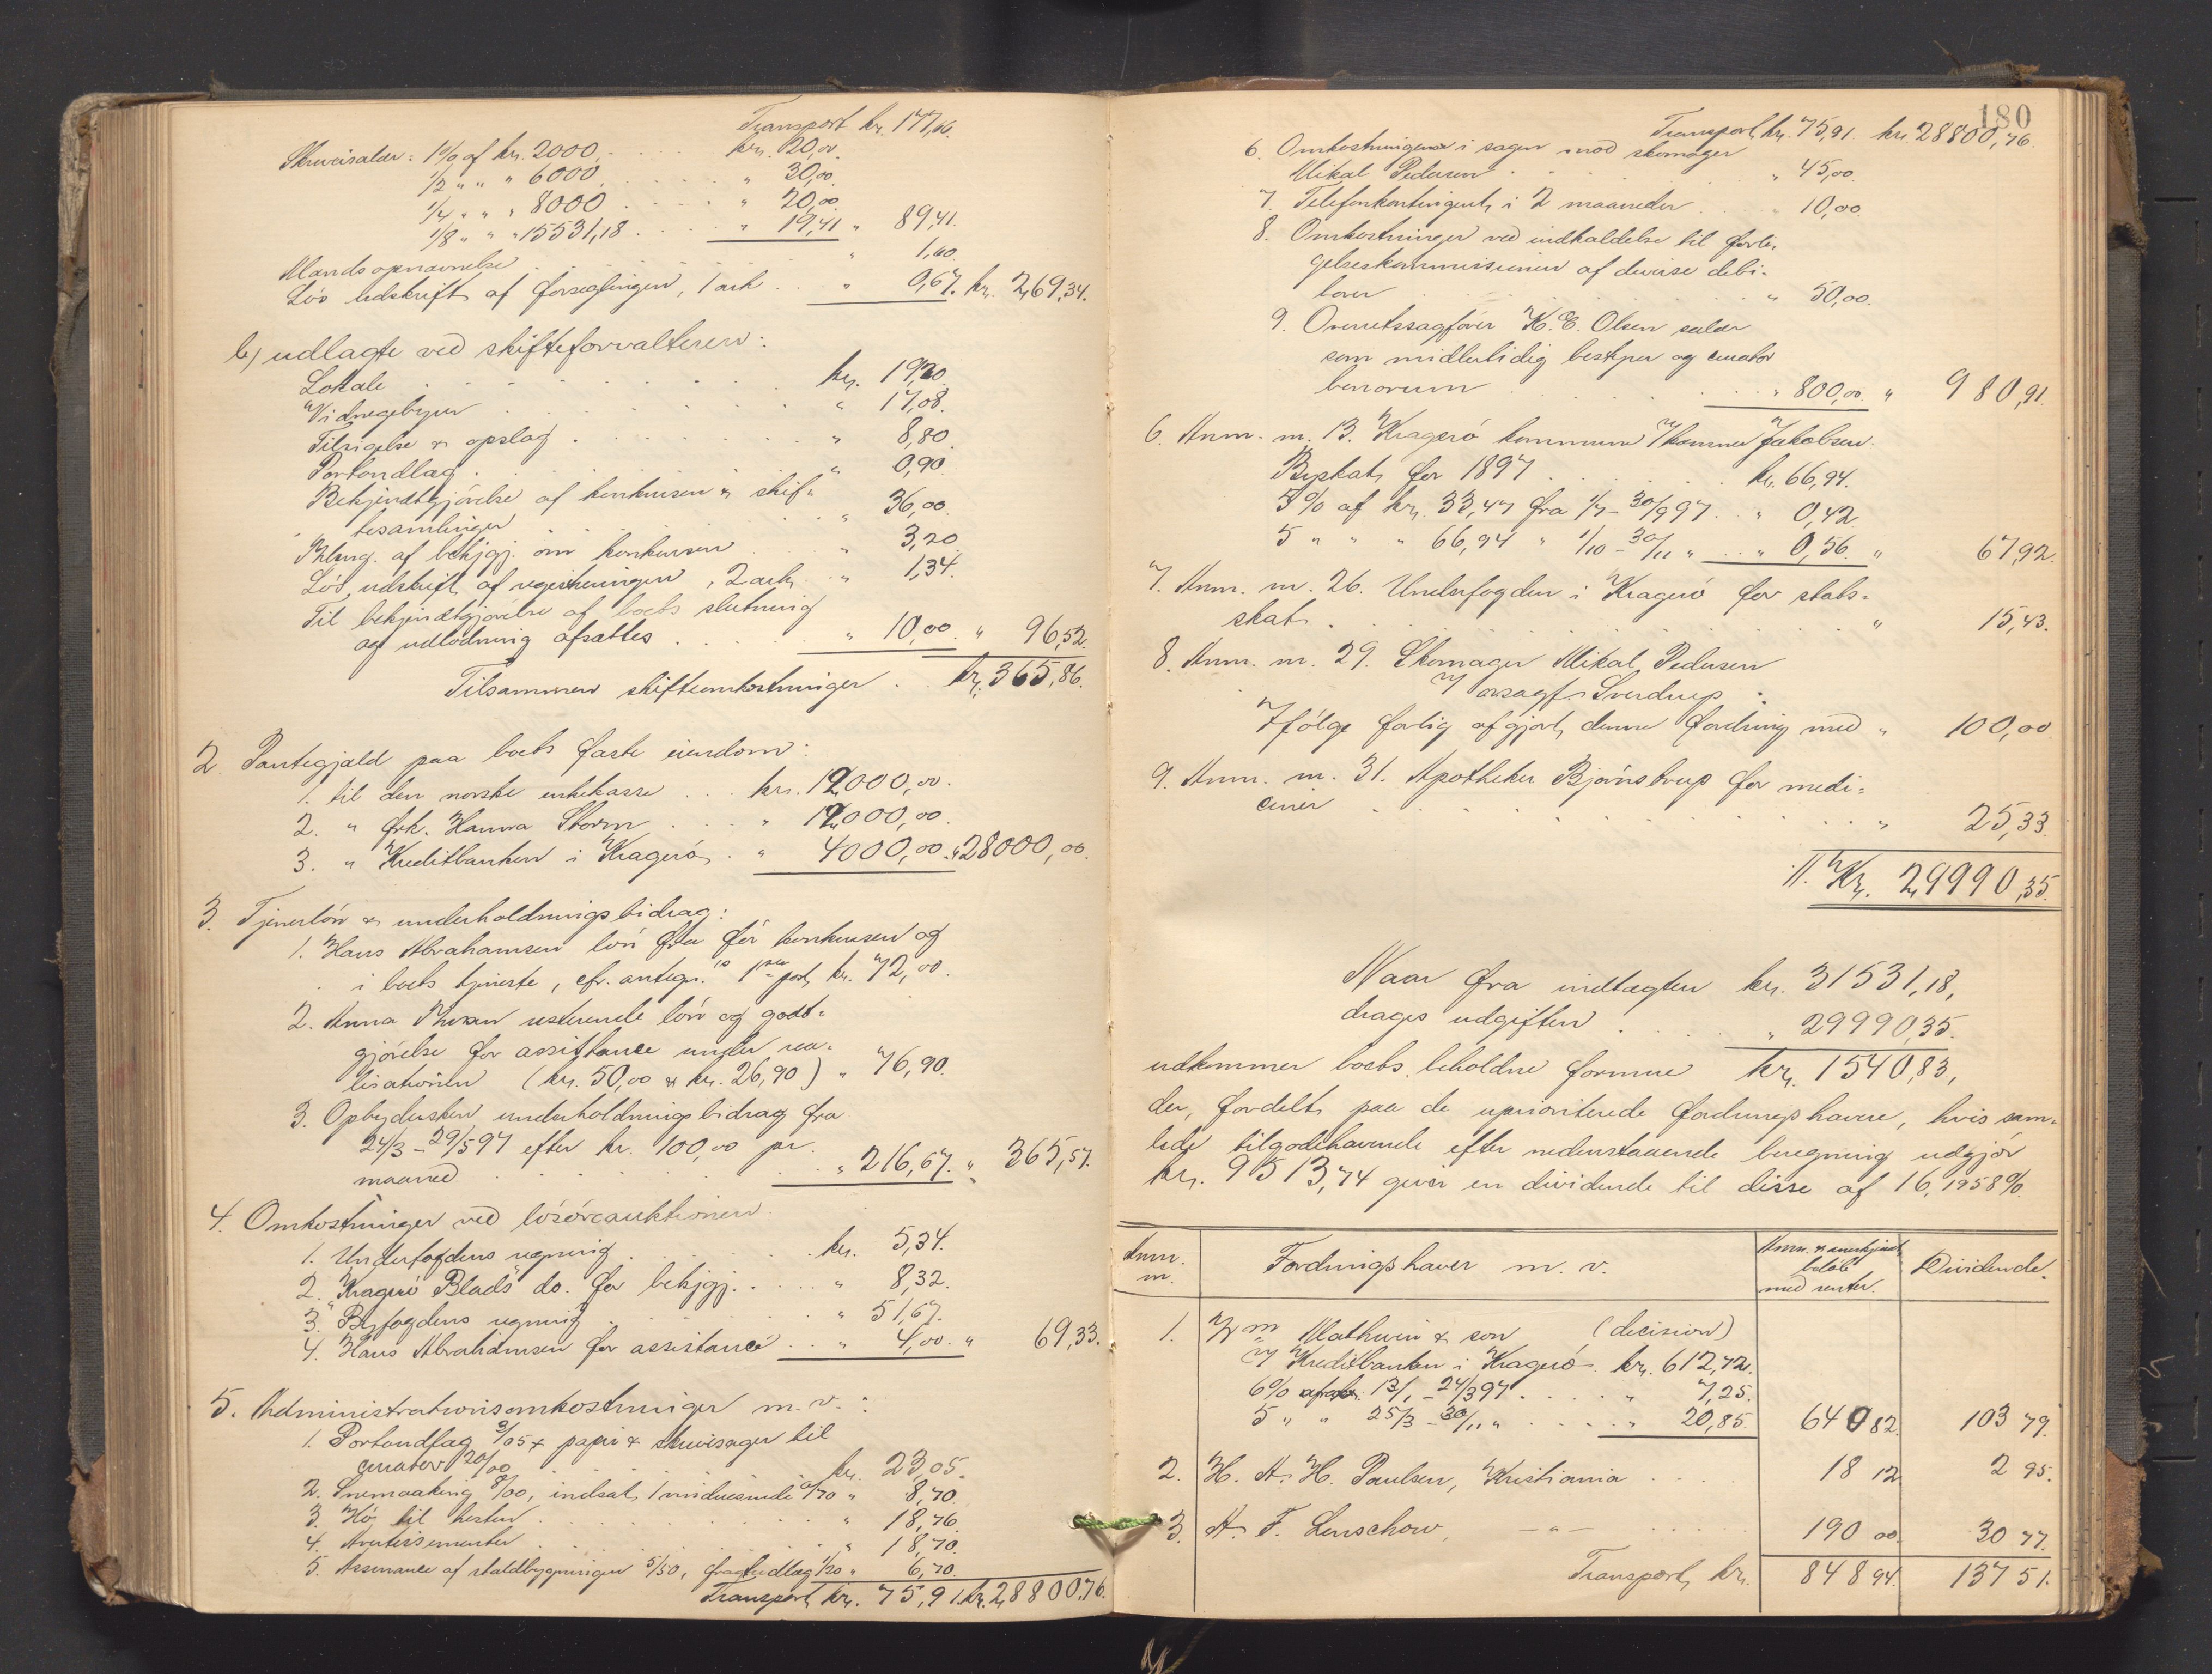 Transport kr. 177,66.
Skriversalær: 1% af kr. 2000 . . . kr. 20,00.
1/2 " " " 6000 . . . " 30,00.
1/4 " " " 8000 . . . " 20,00.
1/8 " " " 15531,18 . . . " 19,41 " 89,41.
Mandsopnævnelse . . . " 1,60.
Løs udskrift af forseglingen, 1 ark . . " 0,67. kr. 269,34.
b) udlagte ved skifteforvalteren:
Lokale . . . kr. 19,20
Vidnegebyrer . . . " 17,08.
Tilsigelse & opslag . . . " 8,80.
Portoudlæg . . . " 0,90
Bekjendtgjørelse af konkursen & skif-
tesamlinger . . . " 36,00.
Thlesn. af bekjgj. om konkursen . . . " 3,20
Løs udskrift af registreringen, 2 ark . . " 1,34.
Til bekjendtgjørelse af boets slutning
og udlodning afsættes . . . " 10,00. " 96,52.
Tilsammen skifteomkostninger . kr. 365,86.
2. Pantegjæld paa boets faste eiendom:
1. til den norske enkekasse . . . kr. 12000,00.
2. " frk. Hanna Storm . . . " 12000,00.
3. " Kreditbanken i Kragerø . " 4000,00. " 28000,00.
3. Tjenerløn & underholdningsbidrag:
1. Hans Abrahamsen løn fra før konkursen og
i boets tjeneste, cfr. antegn. to 1ste post, kr. 72,00.
2. Anna resterende løn og godt-
gjørelse for assistance under rea-
lisationen (kr. 50,00 & kr. 26,90) " 76,90.
3. Opbyderskens underholdningsbidrag fra
24/3 - 29/5 97 efter kr. 100,00 pr.
maaned . . . " 216,67. " 365,57.
4. Omkostninger ved løsøreauktionen
1. Underfogdens regning . . . kr. 5,34.
2. "Kragerø Blads" do. for bekjgj. . . " 8,32.
3. Byfogdens regning . . . " 51,67.
4. Hans Abrahamsen for assistance . . " 4,00. " 69,33.
5. Administrationsomkostninger m. v.:
1. Portoudlæg 3/05 & papir & skrivesager til
curator 20/00 . . . kr. 23,05.
2. Snemaaking 8/00, indsat 1 vinduesrude 0/70 " 8,70.
3. Hø til hesten . . . " 18,76.
4. Avertissementer . . . " 18,70.
5. Assurance af staldbygningen 5/50, fragtudlæg 1/20 " 6,70.
Transport kr. 75,91. kr. 28800,76.
180
Transport kr. 75,91. kr. 28800,76.
6. Omkostningerne i sagen mod skomager
Mikal Pedersen . . . " 45,00.
7. Telefonkontingent i 2 maaneder . . " 10,00.
8. Omkostninger ved indkaldelse til forli-
gelseskommissionen af diverse debi-
torer . . . " 50,00.
9. Overretssagfører K. E. Olsen salær
som midlertidig bestyrer og curator
bonorum . . . " 800,00. " 980,91.
6. Anm. nr. 13. Kragerø kommune v/ kæmner Jakobsen.
Byskat for 1897 . . . kr. 66,94.
5% af kr. 33,47 fra 1/7 - 30/9 97 . " 0,42.
5 " " " 66,94 " 1/10 - 30/11 " . . " 0,56. " 67,92.
7. Anm. nr. 26. Underfogden i Kragerø for stats-
skat . . . " 15,43.
8. Anm. nr. 29. Skomager Mikal Pedersen
v/ orsagf. Sverdrup.
Ifølge forlig afgjort denne fordring med " 100,00.
9. Anm. nr. 31. Apotheker Bjørnstrup for medi-
ciner . . . " 25,33.
Kr. 29990,35.
Naar fra indtægten kr. 31531,18,
drages udgiften . . . " 29990,35.
udkommer boets beholdne formue kr. 1540,83,
der, fordelt paa de uprioriterede fordringshavere, hvis sam-
lede tilgodehavende efter nedenstaaende beregning udgjør
kr. 9513,74 giver en dividende til disse af 16,1958%.
Anm. nr. Fordringshaver m. v. Anm. & anerkjendt beløb med renter. Dividende.
1. Mathiesen & søn (decision)
v/ Kreditbanken i Kragerø kr. 612,72.
6% 13/1 - 24/3 97 . . . " 7,25.
5 " " 25/3 - 30/11 " . . . " 20,85. 640 82. 103 79.
2. H. A. H. Paulsen, Kristiania . . . 18 12. 2 95.
3. A. F. Lenschow, — " — . . . 190 00. 30 77.
Transport kr. 848 94. 137 51.